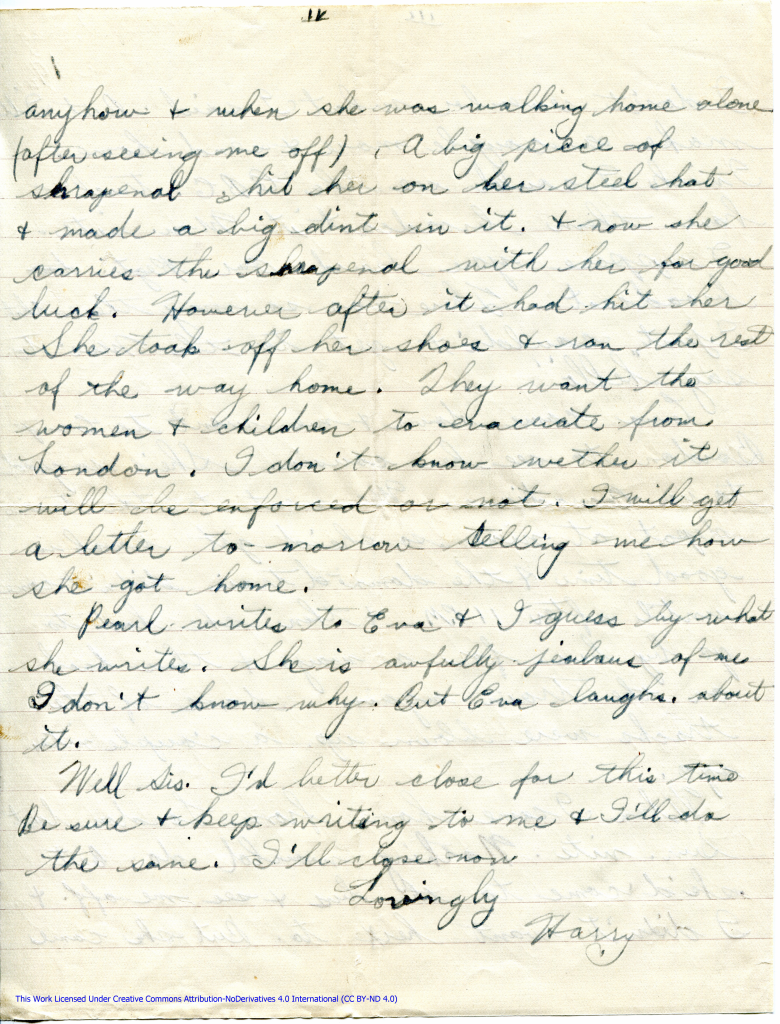 anyhow & when she was walking home alone
(after seeing me off), A big piece of
shrapenal hit her on her steel hat
& made a big dint in it. & now she
carries the shrapenal with her for good
luck. However after it had hit her
She took off her shoes & ran the rest
of the way home. They want the
women & children to evacuate from
London. I don't know wether it
will be enforced or not. I will get
a letter to-morrow telling me how
she got home.
Pearl writes to Eva & I guess by what
she writes. She is awfully jealous of me
I don't know why. But Eva laughs. about
it.
Well Sis. I'd better close for this time
Be sure & keep writing to me & I'll do
the same. I'll close now
Lovingly
Harry
This Work Licensed Under Creative Commons Attribution-NoDerivatives 4.0 International (CC BY-ND 4.0)